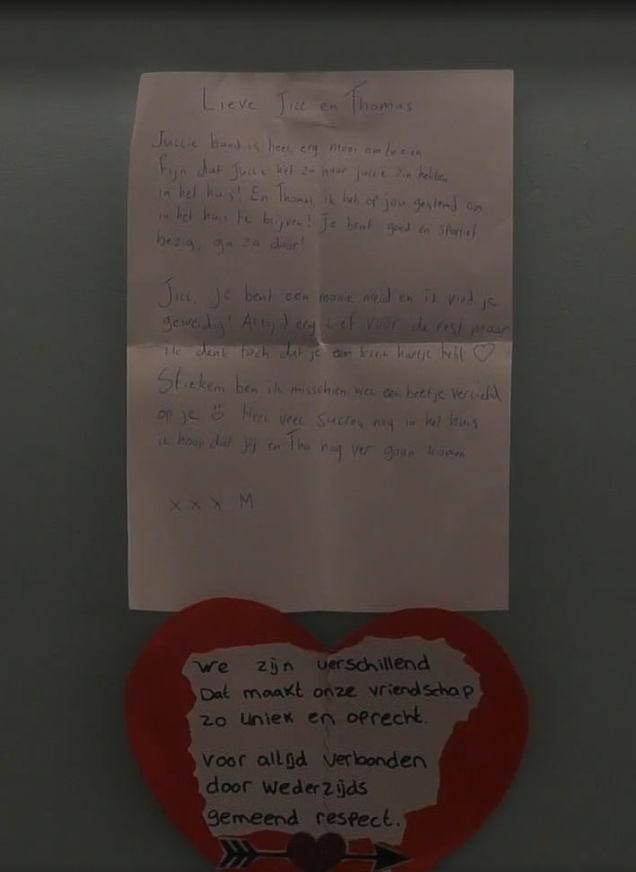 Lieve Jill en Thomas
Jullie band is heel erg mooi om te zien
Fijn dat jullie het zo naar jullie zin hebben
in het huis! En Thomas, ik heb op jou gestemd om
in het huis te blijven! Je bent goed en sportief
bezig, ga zo door!
Jill, je bent een mooie meid en ik vind je
geweldig! Altijd erg lief voor de rest maar
ik denk toch dat je een klein hartje hebt ♡
Stiekem ben ik misschien wel een beetje verliefd
op je ☺ Heel veel succes nog in het huis
ik hoop dat jij en Tho nog ver gaan komen
x x x M
We zijn verschillend
Dat maakt onze vriendschap
zo uniek en oprecht.
voor altijd verbonden
door wederzijds
gemeend respect.